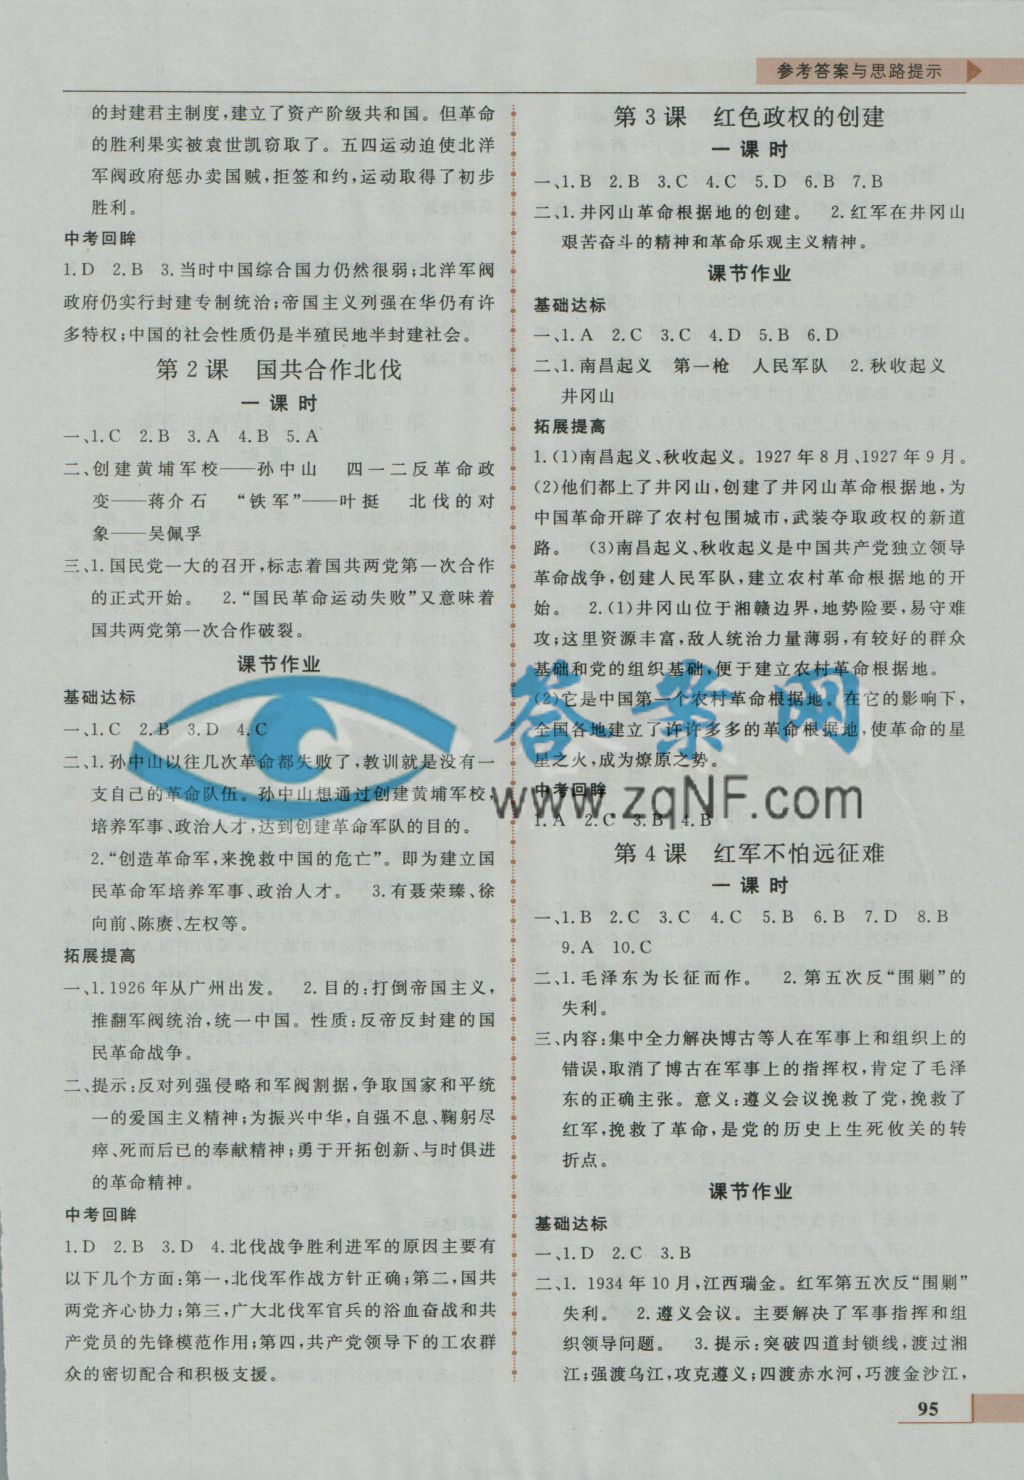 参考答案与思路提示
的封建君主制度,建立了资产阶级共和国。但革命
的胜利果实被袁世凯窃取了。五四运动迫使北洋
军阀政府惩办卖国贼,拒签和约,运动取得了初步
胜利。
中考回眸
1.D 2.B 3.当时中国综合国力仍然很弱;北洋军阀
政府仍实行封建专制统治;帝国主义列强在华仍有许
多特权;中国的社会性质仍是半殖民地半封建社会。
第2课 国共合作北伐
一课时
一、1.C 2.B 3.A 4.B 5.A
二、创建黄埔军校——孙中山 四一二反革命政
变——蒋介石 “铁军”——叶挺 北伐的对
象——吴佩孚
三、1.国民党一大的召开,标志着国共两党第一次合作
的正式开始。 2.“国民革命运动失败”又意味着
国共两党第一次合作破裂。
课节作业
基础达标
一、1.C 2.B 3.D 4.C
二、1.孙中山以往几次革命都失败了,教训就是没有一
支自己的革命队伍。孙中山想通过创建黄埔军校,
培养军事、政治人才,达到创建革命军队的目的。
2.“创造革命军,来挽救中国的危亡”。即为建立国
民革命军培养军事、政治人才。 3.有聂荣臻、徐
向前、陈赓、左权等。
拓展提高
一、1.1926年从广州出发。 2.目的:打倒帝国主义,
推翻军阀统治,统一中国。性质:反帝反封建的国
民革命战争。
二、提示:反对列强侵略和军阀割据,争取国家和平统
一的爱国主义精神;为振兴中华,自强不息、鞠躬尽
瘁、死而后已的奉献精神;勇于开拓创新、与时俱进
的革命精神。
中考回眸
1.D 2.B 3.D 4.北伐战争胜利进军的原因主要有
以下几个方面:第一,北伐军作战方针正确;第二,国共
两党齐心协力;第三,广大北伐军官兵的浴血奋战和共
产党员的先锋模范作用;第四,共产党领导下的工农群
众的密切配合和积极支援。
第3课 红色政权的创建
一课时
一、1.B 2.B 3.C 4.C 5.D 6.B 7.B
二、1.井冈山革命根据地的创建。 2.红军在井冈山
艰苦奋斗的精神和革命乐观主义精神。
课节作业
基础达标
一、1.A 2.C 3.C 4.D 5.B 6.D
二、1.南昌起义 第一枪 人民军队 2.秋收起义
井冈山
拓展提高
1.(1)南昌起义、秋收起义。1927年8月、1927年9月。
(2)他们都上了井冈山,创建了井冈山革命根据地,为
中国革命开辟了农村包围城市,武装夺取政权的新道
路。 (3)南昌起义、秋收起义是中国共产党独立领导
革命战争,创建人民军队,建立农村革命根据地的开
始。 2.(1)井冈山位于湘赣边界,地势险要,易守难
攻;这里资源丰富,敌人统治力量薄弱,有较好的群众
基础和党的组织基础,便于建立农村革命根据地。
(2)它是中国第一个农村革命根据地。在它的影响下,
全国各地建立了许许多多的革命根据地,使革命的星
星之火,成为燎原之势。
中考回眸
1.A 2.C 3.B 4.B
第4课 红军不怕远征难
一课时
一、1.B 2.C 3.C 4.C 5.B 6.B 7.D 8.B
9.A 10.C
二、1.毛泽东为长征而作。 2.第五次反“围剿”的
失利。
三、内容:集中全力解决博古等人在军事上和组织上的
错误,取消了博古在军事上的指挥权,肯定了毛泽
东的正确主张。意义:遵义会议挽救了党,挽救了
红军,挽救了革命,是党的历史上生死攸关的转
折点。
课节作业
基础达标
一、1.D 2.C 3.B
二、1.1934年10月,江西瑞金。红军第五次反“围剿”
失利。 2.遵义会议。主要解决了军事指挥和组
织领导问题。 3.提示:突破四道封锁线,渡过湘
江;强渡乌江,攻克遵义;四渡赤水河,巧渡金沙江,
95
答案网
www.zqNF.com